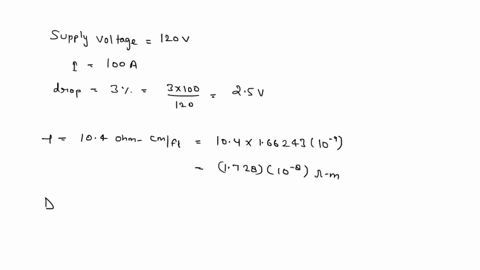 Supply voltage = 120V
I = 100A
drop = 3% = 3x100/120 = 2.5V
f = 10.4 ohm-cm/ft = 10.4 x 1.66243 (10⁻⁹)
= (1.728)(10⁻⁸) Ω-m
D